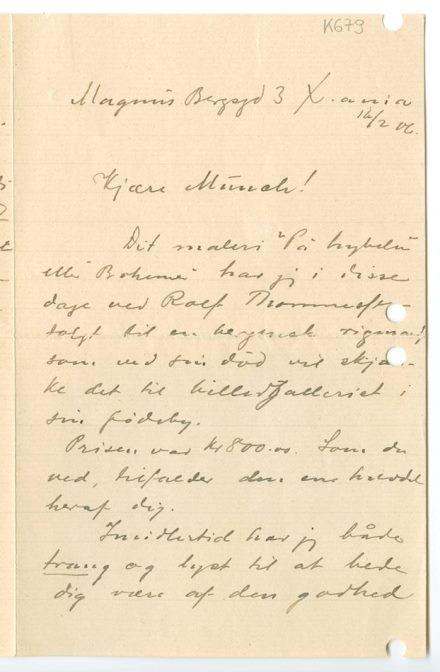 K679
Magnus Bergsgd 3 X.ania
12/2 06.
Kjære Münch!
Dit maleri "På hybelen
eller Bohemer" har jeg i disse
dage ved Rolf Thommesen
solgt til en bergensk rigmand,
som ved sin død vil skjæn-
ke det til billedgalleriet i
sin fødeby.
Prisen var Kr 800.00. Som du
ved, tilfalder den ene halvdel
heraf dig.
Imidlertid har jeg både
trang og lyst til at bede
dig være af den godhed